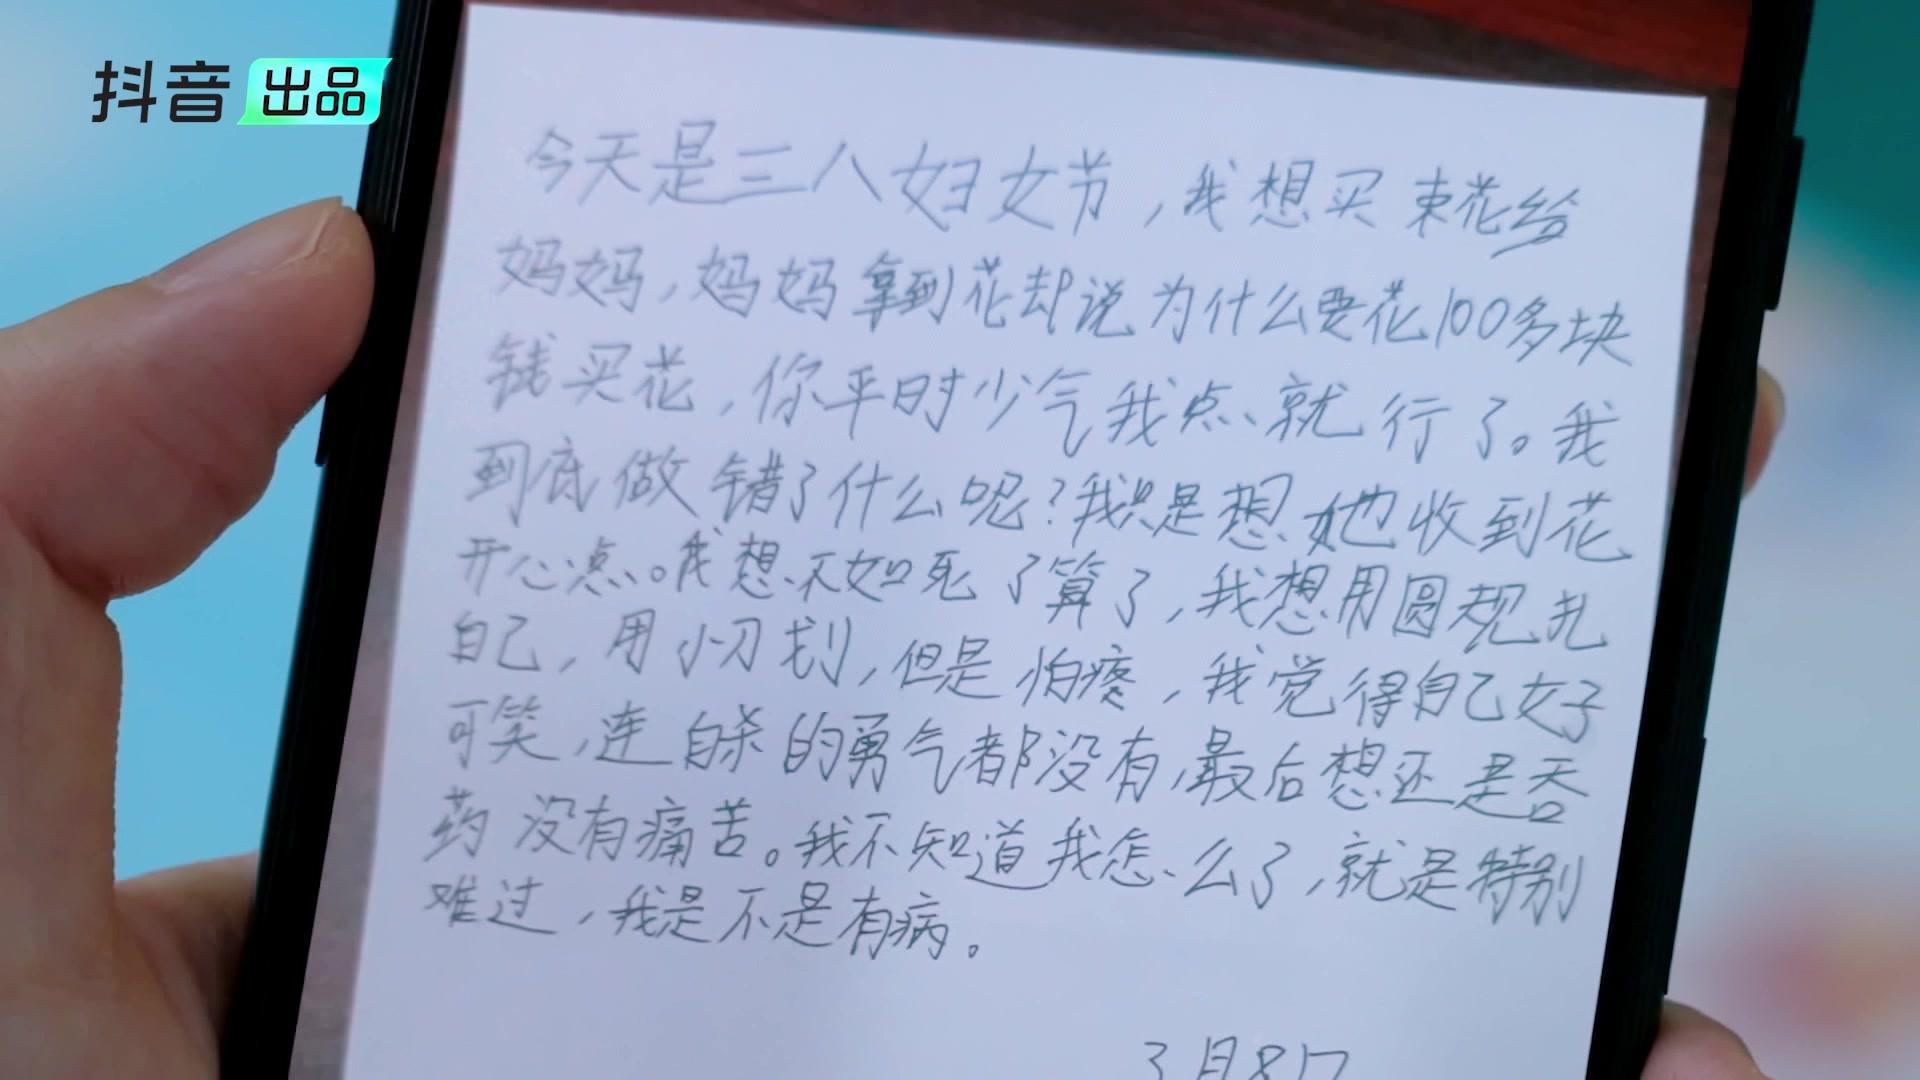 抖音 出品
今天是三八妇女节，我想买束花给
妈妈，妈妈拿到花却说为什么要花100多块
钱买花，你平时少气我点就行了。我
到底做错了什么呢？我只是想她收到花
开心点。我想不如死了算了，我想用圆规扎
自己，用小刀划，但是怕疼，我觉得自己好
可笑，连自杀的勇气都没有，最后想还是吞
药没有痛苦。我不知道我怎么了，就是特别
难过，我是不是有病。
3月8日